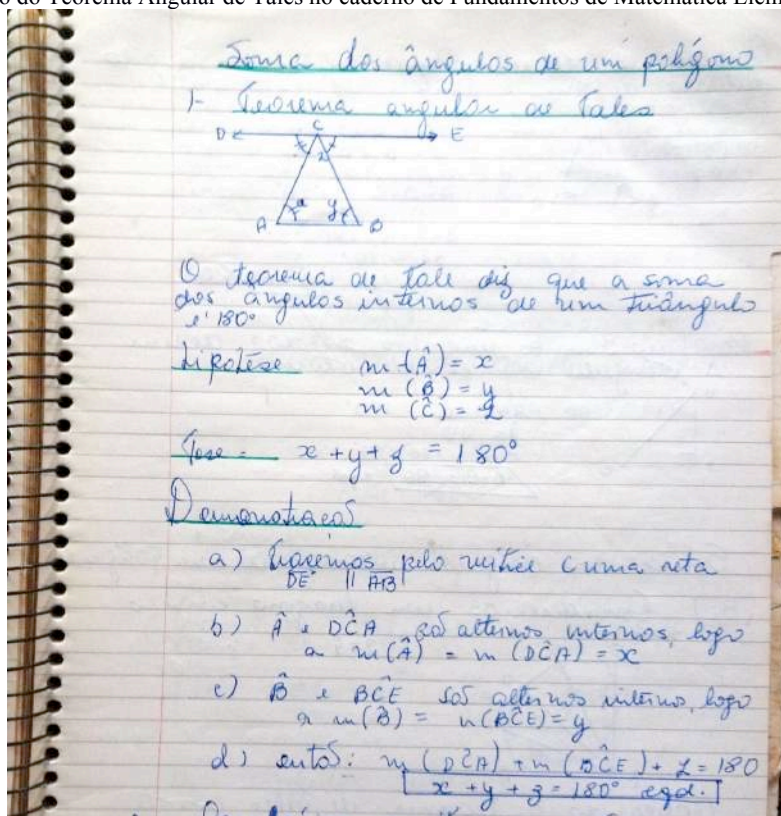 o do Teorema Angular de Tales no caderno de Fundamentos de Matemática Elem
Soma dos ângulos de um polígono
1- Teorema angular de Tales
D C E
x z y
A x y B
O teorema de Tale diz que a soma
dos ângulos internos de um triângulo
é 180°
Hipotése m(Â) = x
m (B̂) = y
m (Ĉ) = z
Tese = x + y + z = 180°
Demonstração
a) tracemos pelo vertice C uma reta
DE || AB
b) Â e DĈA são alternos internos, logo
a m(Â) = m(DĈA) = x
c) B̂ e BĈE são alternos internos, logo
a m(B̂) = m(BĈE) = y
d) então: m(DĈA) + m(BĈE) + z = 180
x + y + z = 180° cqd.